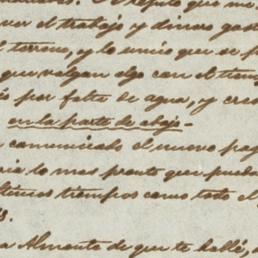 repito que no
ver el trabajo y dinero gas
l terreno, y lo unico que se p
que valgan algo con el tiem
s por falta de agua, y cre
en la parte de abajo-
comunicado el nuevo pa
ria lo mas pronto que pueda
ltimos tiempos como todo el
s.
a Almonte de que te hablé,